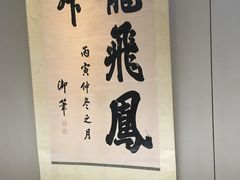 龍飛鳳
丙寅仲冬之月
御筆